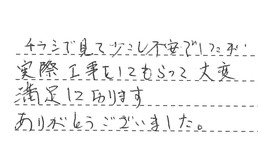 チラシで見て少し不安でしたが
実際工事をしてもらって大変
満足しております
ありがとうございました。